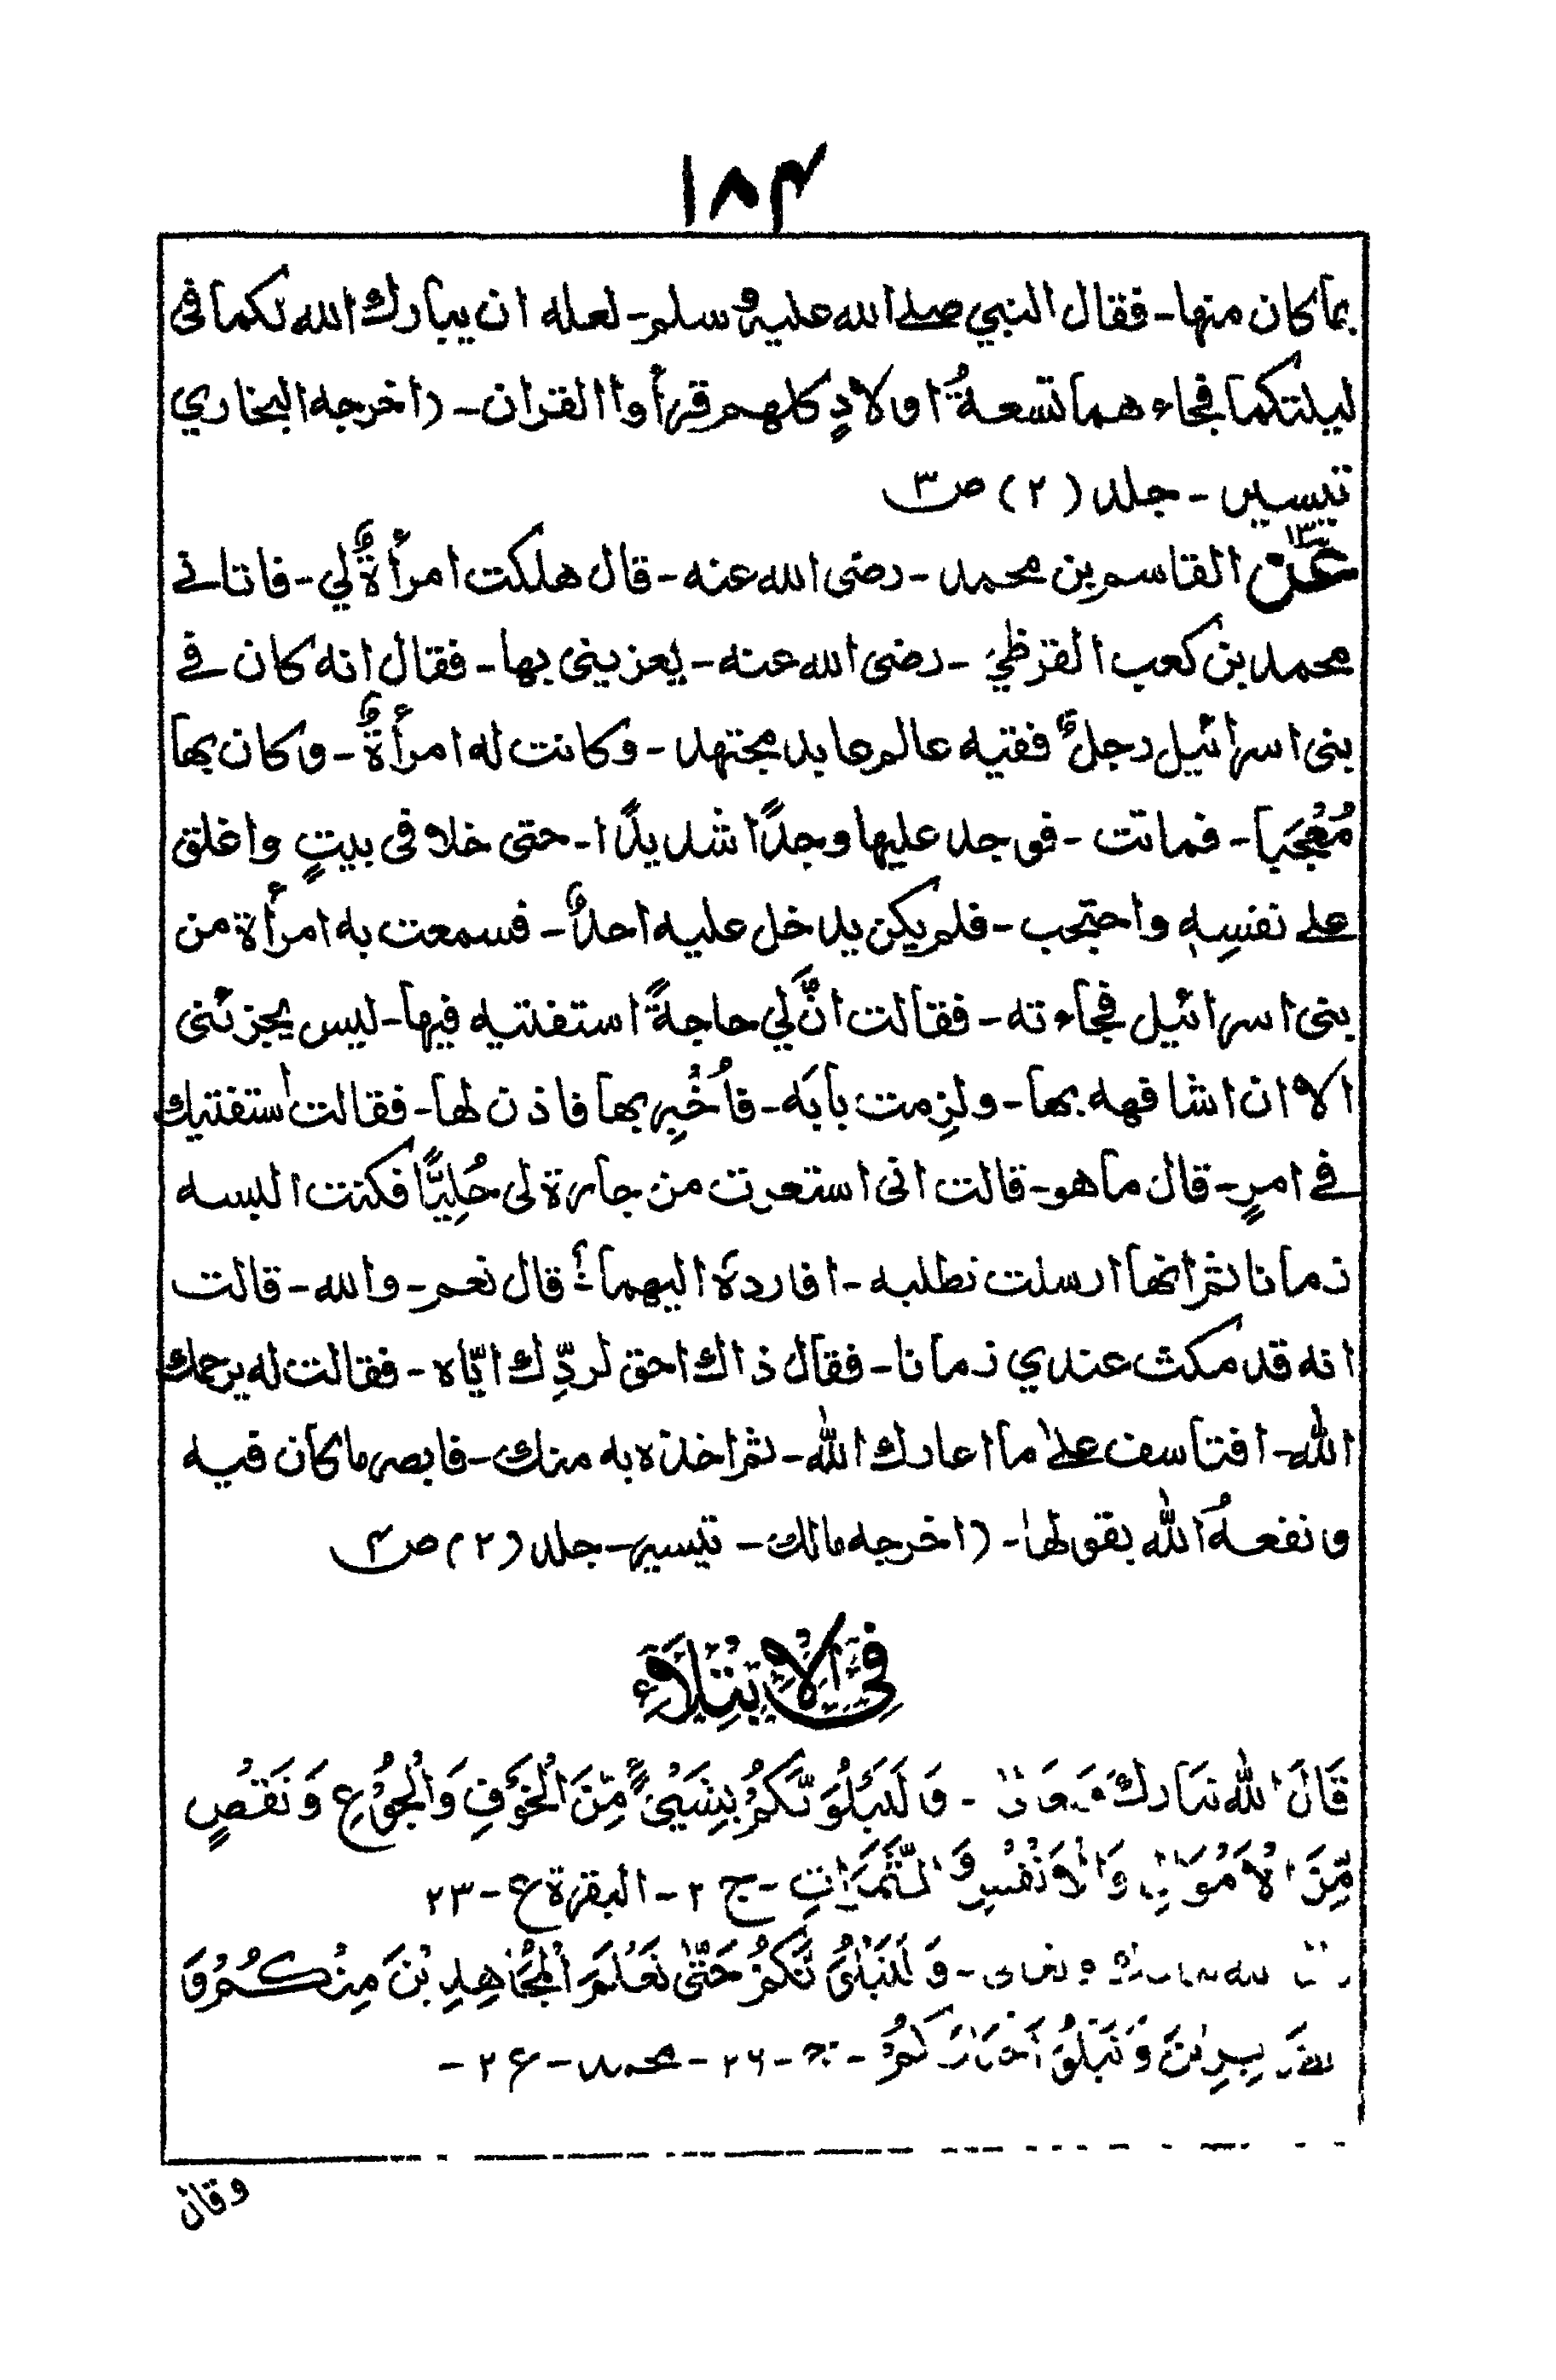 ١٨٤
بما كان منها - فقال النبي صلے الله عليه وسلم - لعله ان يبارك الله لكما فى
ليلتكما فجاءهما تسعةُ اولادٍ كلهم قرأوا القران - (اخرجه البخاري
تيسير - جلد (٢) ص٣
عن ١٣ القاسم بن محمد - رضى الله عنه - قال هلكت امرأةٌ لي - فاتانے
محمد بن كعب القرظي - رضى الله عنه - يعزينى بها - فقال انه كان فے
بنى اسرائيل رجلٌ فقيه عالم عابد مجتهد - وكانت له امرأةٌ - وكان بها
مُعْجَبا - فماتت - فوجد عليها وجدًا شديدًا - حتى خلا فى بيتٍ واغلق
علے نفسِهٖ واحتجب - فلم يكن يدخل عليه احدٌ - فسمعت به امرأة من
بنى اسرائيل فجاءته - فقالت انَّ لي حاجةً استفتيه فيها - ليس يجزئنى
الا ان اشافهه بها - ولزِمت بابَه - فاُخْبِر بها فاذن لها - فقالت أستفتيك
فے امرٍ - قال ما هو - قالت انى استعرت من جارة لى حُلِيًّا فكنت البسه
زمانا ثم انها ارسلت تطلبه - افاردهٗ اليها - قال نعم - والله - قالت
انه قد مكث عندي زمانا - فقال ذاك احق لردِّك ايّاه - فقالت له يرحمك
الله - افتاسف علےٰ ما اعارك الله - ثم اخذه به منك - فابصر ما كان فيه
ونفعهُ الله بقولها - (اخرجه مالك - تيسير - جلد (٢) ص٤
فِى الْاِبْتِلَآءِ
قَالَ الله تبارك وَتعَالىٰ - وَلَنَبْلُوَنَّكُمْ بِشَيْئٍ مِّنَ الْخَوْفِ وَالْجُوْعِ وَنَقْصٍ
مِّنَ الْاَمْوَالِ وَالْاَنْفُسِ وَالثَّمَرَاتِ - ج ٢ - البقرة ع - ٢٣
الله تبارك وتعالى - وَلَنَبْلُوَنَّكُمْ حَتّٰى نَعْلَمَ الْمُجَاهِدِيْنَ مِنْكُمْ وَ
الصَّابِرِيْنَ وَنَبْلُوَ اَخْبَارَكُمْ - ج - ٢٦ - محمد - ع ٢ -
وقال